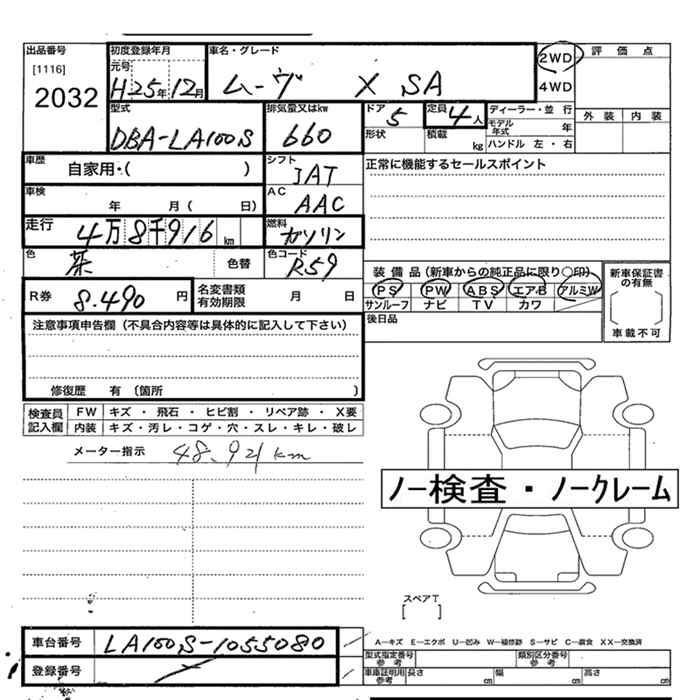 出品番号
[1116]
2032
初度登録年月
元号
H25年12月
車名・グレード
ムーヴ X SA
2WD
4WD
評価点
外装 内装
型式
DBA-LA100S
排気量又はkw
660
ドア
5
形状
定員
4人
積載 kg
ディーラー・並行
モデル年式 年
ハンドル 左・右
車歴
自家用・( )
シフト
IAT
正常に機能するセールスポイント
車検
年 月( 日)
AC
AAC
走行
4万8千916km
燃料
ガソリン
色
茶
色替
色コード
R59
装備品(新車からの純正品に限り○印)
PS PW ABS エアB アルミW
サンルーフ ナビ TV カワ
新車保証書の有無
( )
車載不可
R券
8.490円
名変書類有効期限
月 日
後日品
注意事項申告欄(不具合内容等は具体的に記入して下さい)
修復歴 有(箇所 )
検査員記入欄
FW キズ・飛石・ヒビ割・リペア跡・X要
内装 キズ・汚レ・コゲ・穴・スレ・キレ・破レ
メーター指示 48.921km
ノー検査・ノークレーム
スペアT
[ ]
車台番号
LA100S-1055080
登録番号
A−キズ E−エクボ U−凹み W−補修跡 S−サビ C−腐食 XX−交換済
型式指定番号
参考
類別区分番号
参考
車庫証明用
参考
長さ cm 幅 cm 高さ cm